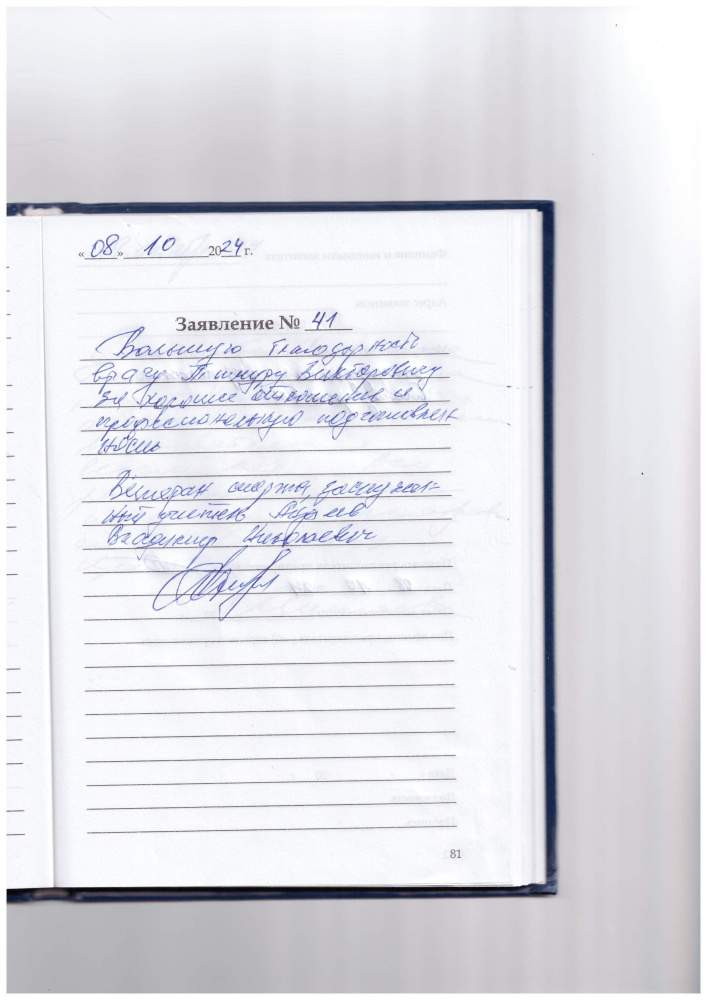 «08» 10 2024 г.
Заявление № 41
Большую благодарность
врачу Тимуру Викторовичу
за хорошее отношение и
профессиональную подготовлен
ность
Ветеран спорта, заслужен-
ный учитель
Владимир Николаевич
81